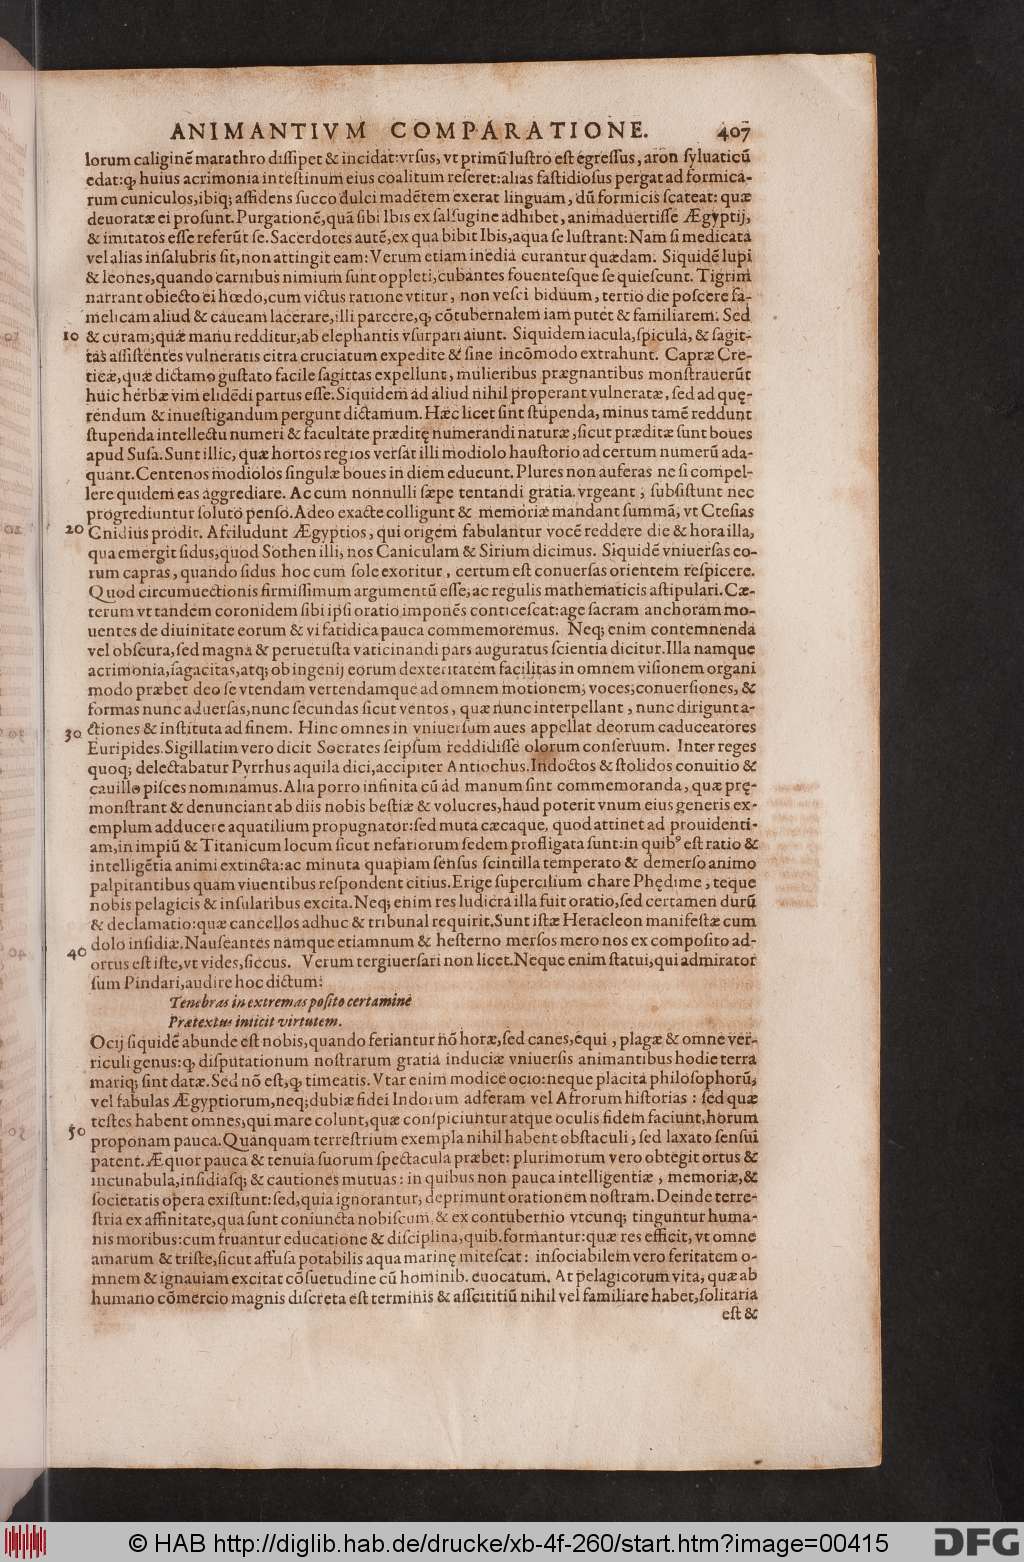 ANIMANTIVM COMPARATIONE. 407
lorum caliginē marathro diſſipet & incidat:vrſus, vt primū luſtro eſt egreſſus, aron ſyluaticū
edat:q huius acrimonia inteſtinum eius coalitum reſeret:alias faſtidioſus pergat ad formica-
rum cuniculos,ibiq; aſſidens ſucco dulci madētem exerat linguam, dū formicis ſcateat: quæ
deuoratæ ei proſunt.Purgationē,quā ſibi Ibis ex ſalſugine adhibet, animaduertiſſe Ægyptij,
& imitatos eſſe referūt ſe.Sacerdotes autē,ex qua bibit Ibis,aqua ſe luſtrant:Nam ſi medicata
vel alias inſalubris ſit,non attingit eam: Verum etiam inedia curantur quædam. Siquidē lupi
& leones,quando carnibus nimium ſunt oppleti,cubantes fouenteſque ſe quieſcunt. Tigrim
narrant obiecto ei hœdo,cum victus ratione vtitur, non veſci biduum, tertio die poſcere fa-
melicam aliud & caueam lacerare,illi parcere,q cōtubernalem iam putet & familiarem. Sed
10 & curam;quæ manu redditur,ab elephantis vſurpari aiunt. Siquidem iacula,ſpicula, & ſagit-
tas aſſiſtentes vulneratis citra cruciatum expedite & ſine incōmodo extrahunt. Capræ Cre-
ticæ,quæ dictamo guſtato facile ſagittas expellunt, mulieribus prægnantibus monſtrauerūt
huic herbæ vim elidēdi partus eſſe.Siquidem ad aliud nihil properant vulneratæ, ſed ad quę-
rendum & inueſtigandum pergunt dictamum. Hæc licet ſint ſtupenda, minus tamē reddunt
ſtupenda intellectu numeri & facultate præditę numerandi naturæ, ſicut præditæ ſunt boues
apud Suſa.Sunt illic, quæ hortos regios verſāt illi modiolo hauſtorio ad certum numerū ada-
quant.Centenos modiolos ſingulæ boues in diem educunt.Plures non auferas ne ſi compel-
lere quidem eas aggrediare. Ac cum nonnulli ſæpe tentandi gratia vrgeant; ſubſiſtunt nec
progrediuntur ſoluto penſo.Adeo exacte colligunt & memoriæ mandant ſummā, vt Cteſias
20 Cnidius prodit. Aſciludunt Ægyptios, qui origem fabulantur vocē reddere die & hora illa,
qua emergit ſidus,quod Sothen illi, nos Caniculam & Sirium dicimus. Siquidē vniuerſas eo-
rum capras, quando ſidus hoc cum ſole exoritur, certum eſt conuerſas orientem reſpicere.
Quod circumuectionis firmiſſimum argumentū eſſe, ac regulis mathematicis aſtipulari. Cæ-
terum vt tandem coronidem ſibi ipſi oratio imponēs conticeſcat:age ſacram anchoram mo-
uentes de diuinitate eorum & vi fatidica pauca commemoremus. Neq; enim contemnenda
vel obſcura,ſed magna & peruetuſta vaticinandi pars auguratus ſcientia dicitur.Illa namque
acrimonia,ſagacitas,atq; ob ingenij eorum dexteritatem facilitas in omnem viſionem organi
modo præbet deo ſe vtendam vertendamque ad omnem motionem; voces;conuerſiones, &
formas nunc aduerſas,nunc ſecundas ſicut ventos, quæ nunc interpellant, nunc dirigunt a-
30 ctiones & inſtituta ad finem. Hinc omnes in vniuerſum aues appellat deorum caduceatores
Euripides.Sigillatim vero dicit Socrates ſeipſum reddidiſſe olorum conſeruum. Inter reges
quoq; delectabatur Pyrrhus aquila dici,accipiter Antiochus.Indoctos & ſtolidos conuitio &
cauillo piſces nominamus.Alia porro infinita cū ad manum ſint commemoranda, quæ prę-
monſtrant & denunciant ab diis nobis beſtiæ & volucres,haud poterit vnum eius generis ex-
emplum adducere aquatilium propugnator:ſed muta cæcaque, quod attinet ad prouidenti-
am,in impiū & Titanicum locum ſicut nefariorum ſedem profligata ſunt:in quibꝰ eſt ratio &
intelligētia animi extincta:ac minuta quapiam ſenſus ſcintilla temperato & demerſo animo
palpitantibus quam viuentibus reſpondent citius.Erige ſupercilium chare Phędime, teque
nobis pelagicis & inſularibus excita.Neq; enim res ludicra illa fuit oratio,ſed certamen durū
& declamatio:quæ cancellos adhuc & tribunal requirit.Sunt iſtæ Heracleon manifeſtæ cum
40 dolo inſidiæ.Nauſeantes namque etiamnum & heſterno merſos mero nos ex compoſito ad-
ortus eſt iſte,vt vides,ſiccus. Verum tergiuerſari non licet.Neque enim ſtatui,qui admirator
ſum Pindari,audire hoc dictum:
Tenebras in extremas poſito certamine
Prætextus iniicit virtutem.
Ocij ſiquidē abunde eſt nobis,quando feriantur nō horæ,ſed canes,equi, plagæ & omne ver-
riculi genus:q diſputationum noſtrarum gratia induciæ vniuerſis animantibus hodie terra
mariq; ſint datæ.Sed nō eſt,q timeatis.Vtar enim modice ocio:neque placita philoſophorū,
vel fabulas Ægyptiorum,neq;dubiæ fidei Indorum adferam vel Afrorum hiſtorias: ſed quæ
teſtes habent omnes,qui mare colunt,quæ conſpiciuntur atque oculis fidem faciunt,horum
50 proponam pauca.Quanquam terreſtrium exempla nihil habent obſtaculi, ſed laxato ſenſui
patent.Æquor pauca & tenuia ſuorum ſpectacula præbet: plurimorum vero obtegit ortus &
incunabula,inſidiaſq; & cautiones mutuas: in quibus non pauca intelligentiæ, memoriæ,&
ſocietatis opera exiſtunt:ſed,quia ignorantur, deprimunt orationem noſtram.Deinde terre-
ſtria ex affinitate,qua ſunt coniuncta nobiſcum & ex contubernio vtcunq; tinguntur huma-
nis moribus:cum fruantur educatione & diſciplina,quib.formantur:quæ res efficit, vt omne
amarum & triſte,ſicut affuſa potabilis aqua marinę miteſcat: inſociabilem vero feritatem o-
mnem & ignauiam excitat cōſuetudine cū hominib. euocatum. At pelagicorum vita, quæ ab
humano cōmercio magnis diſcreta eſt terminis & aſſcititiū nihil vel familiare habet,ſolitaria
eſt &
© HAB http://diglib.hab.de/drucke/xb-4f-260/start.htm?image=00415
DFG